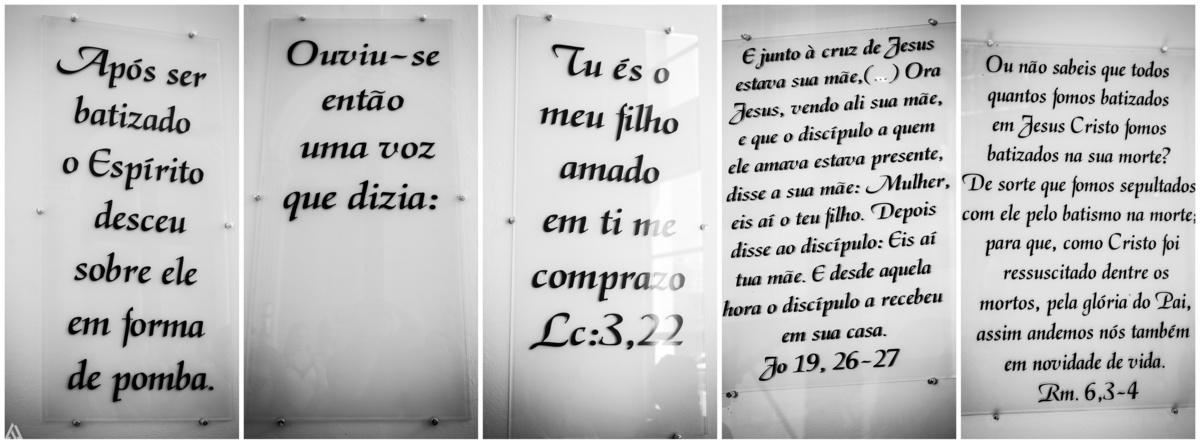 Após ser
batizado
o Espírito
desceu
sobre ele
em forma
de pomba.
Ouviu-se
então
uma voz
que dizia:
Tu és o
meu filho
amado
em ti me
comprazo
Lc:3,22
E junto à cruz de Jesus
estava sua mãe,(...) Ora
Jesus, vendo ali sua mãe,
e que o discípulo a quem
ele amava estava presente,
disse a sua mãe: Mulher,
eis aí o teu filho. Depois
disse ao discípulo: Eis aí
tua mãe. E desde aquela
hora o discípulo a recebeu
em sua casa.
Jo 19, 26-27
Ou não sabeis que todos
quantos fomos batizados
em Jesus Cristo fomos
batizados na sua morte?
De sorte que fomos sepultados
com ele pelo batismo na morte;
para que, como Cristo foi
ressuscitado dentre os
mortos, pela glória do Pai,
assim andemos nós também
em novidade de vida.
Rm. 6,3-4